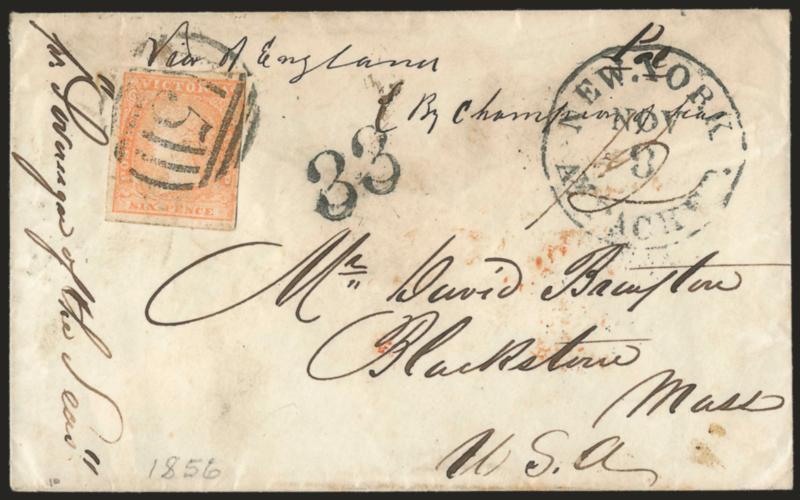 Via of England
Pd
& By Champion of Seas
pr "Sovereign of the Seas"
VICTORIA
SIX PENCE
5
33
NEW YORK
NOV
8
AM. PACKET
Mr David Brayton
Blackstone
Mass
U.S.A
1856